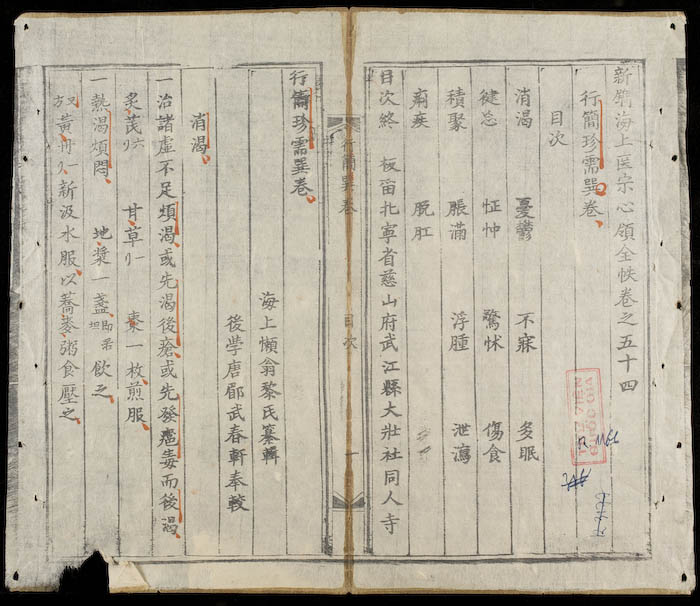 新鐫海上医宗心領全帙卷之五十四
行簡珍需巽卷
目次
消渴 憂鬱 不寐 多眠
健忘 怔忡 驚怵 傷食
積聚 脹滿 浮腫 泄瀉
痢疾 脫肛
目次終 板留北寧省慈山府武江縣大壯社同人寺
行簡巽卷 目次 一
行簡珍需巽卷
海上懶翁黎氏纂輯
後學唐郿武春軒奉較
消渴
一治諸虛不足煩渴或先渴後瘡或先發瘡毒而後渴
炙芪 甘草 棗一枚煎服
一熱渴煩悶 地漿一盞 飲之
又方 黃丹 新汲水服以蕎麥粥食壓之
THƯ VIỆN
QUỐC GIA